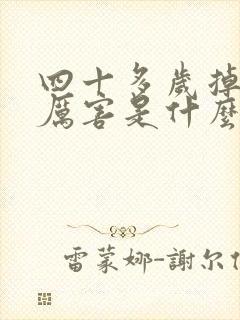 四十多歲掉
厲害是什麼
雷蒙娜-謝尔